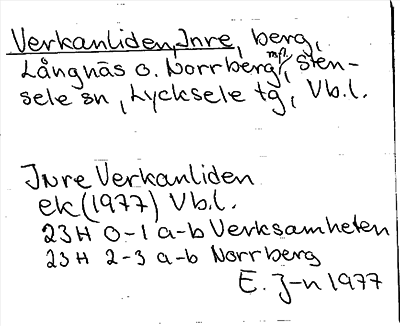 Verkanliden, Inre, berg,
Långnäs o. Norrberg mfl., Sten-
sele sn, Lycksele tg, Vb.l.
Inre Verkanliden
ek (1977) Vb.l.
23H 0-1 a-b Verksamheten
23H 2-3 a-b Norrberg
E. J-n 1977